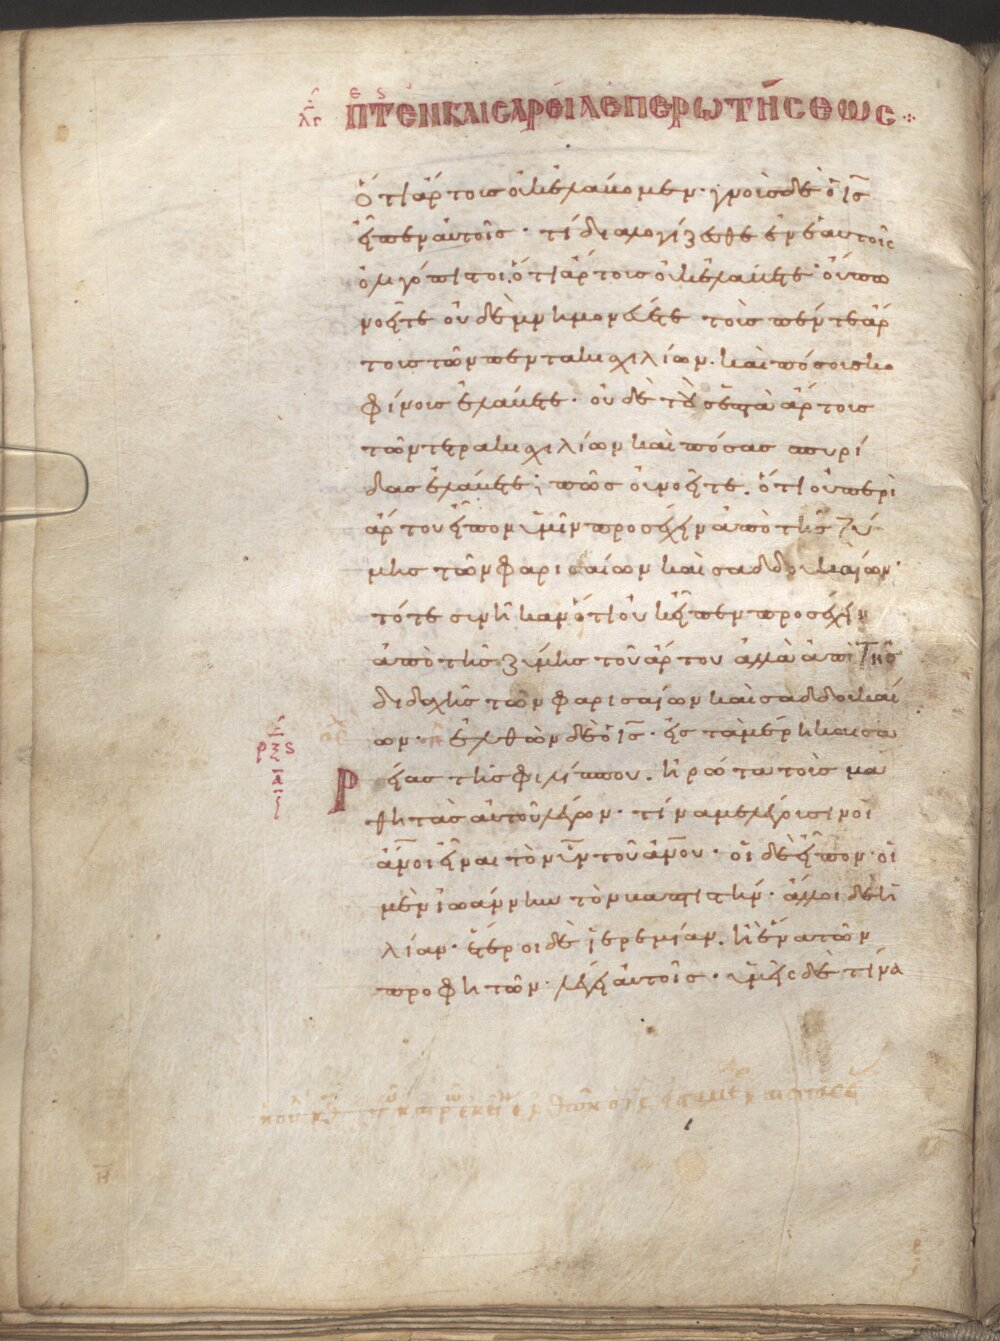 λϛ ΠΤΕΝΚΑΙΣΑΡΕΙΑΕΠΕΡΩΤΗΣΕΩΣ
ὅτι ἄρτους οὐκ ἐλάβομεν· γνοὺς δὲ ὁ ι̅ς̅
εἶπεν αὐτοῖς· τί διαλογίζεσθε ἐν ἑαυτοῖς
ὀλιγόπιστοι, ὅτι ἄρτους οὐκ ἐλάβετε· οὔπω
νοεῖτε οὐδὲ μνημονεύετε τοὺς πέντε ἄρ
τους τῶν πεντακισχιλίων. καὶ πόσους κο
φίνους ἐλάβετε· οὐδὲ τοὺς ἑπτὰ ἄρτους
τῶν τετρακισχιλίων καὶ πόσας σπυρί
δας ἐλάβετε; πῶς οὐ νοεῖτε. ὅτι οὐ περὶ
ἄρτου εἶπον ὑμῖν προσέχειν ἀπὸ τῆς ζύ
μης τῶν φαρισαίων καὶ σαδδουκαίων·
τότε συνῆκαν ὅτι οὐκ εἶπεν προσέχειν
ἀπὸ τῆς ζύμης τοῦ ἄρτου ἀλλὰ ἀπὸ τῆς
διδαχῆς τῶν φαρισαίων καὶ σαδδουκαί
ων· ἐλθὼν δὲ ὁ ι̅ς̅· εἰς τὰ μέρη καισα
ρξϛ
α̅
Ρείας τῆς φιλίππου. ἠρώτα τοὺς μα
θητὰς αὐτοῦ λέγων· τίνα με λέγουσιν οἱ
α̅ν̅ο̅ι εἶναι τὸν υ̅ν̅ τοῦ α̅ν̅ο̅υ· οἱ δὲ εἶπον· οἱ
μὲν ἰωάννην τὸν βαπτιστήν· ἄλλοι δὲ ἠ
λίαν· ἕτεροι δὲ ἱερεμίαν. ἢ ἕνα τῶν
προφητῶν· λέγει αὐτοῖς· ὑμεῖς δὲ τίνα